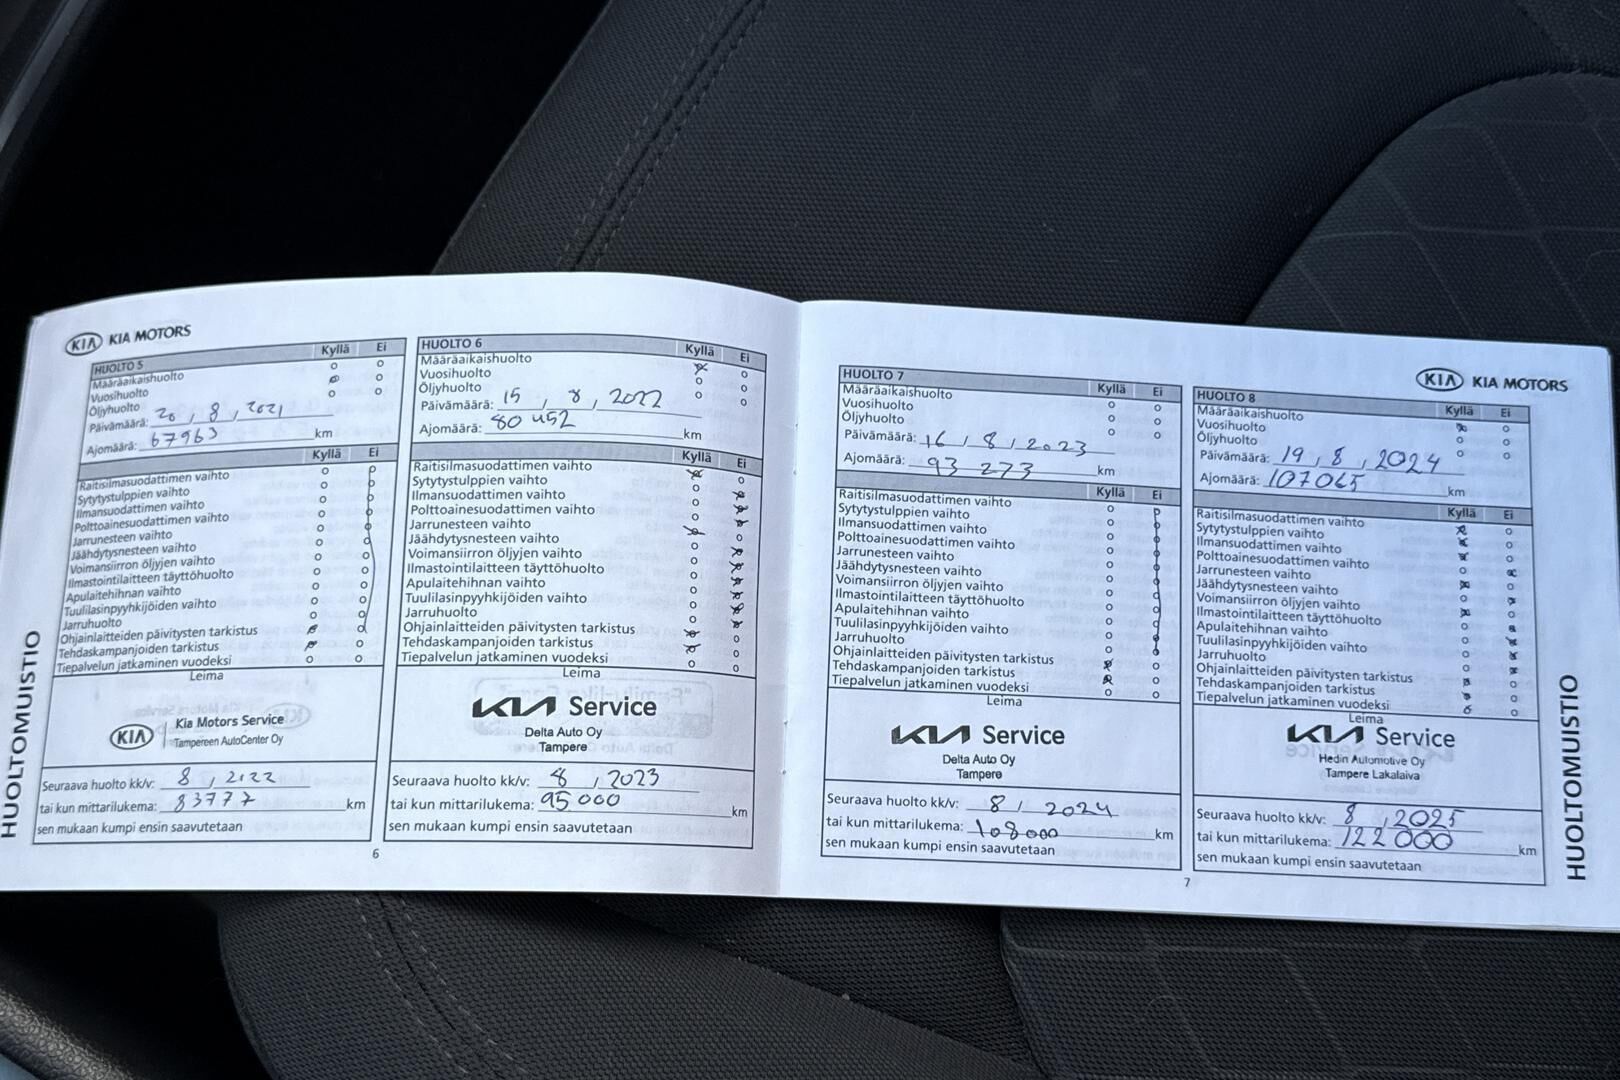 HUOLTOMUISTIO
KIA KIA MOTORS
HUOLTO 5 Kyllä Ei
Määräaikaishuolto
Vuosihuolto
Öljyhuolto
Päivämäärä: 20 , 8 , 2021
Ajomäärä: 67963 km
Kyllä Ei
Raitisilmasuodattimen vaihto
Sytytystulppien vaihto
Ilmansuodattimen vaihto
Polttoainesuodattimen vaihto
Jarrunesteen vaihto
Jäähdytysnesteen vaihto
Voimansiirron öljyjen vaihto
Ilmastointilaitteen täyttöhuolto
Apulaitehihnan vaihto
Tuulilasinpyyhkijöiden vaihto
Jarruhuolto
Ohjainlaitteiden päivitysten tarkistus
Tehdaskampanjoiden tarkistus
Tiepalvelun jatkaminen vuodeksi
Leima
KIA Kia Motors Service
Tampereen AutoCenter Oy
Seuraava huolto kk/v: 8 , 2122
tai kun mittarilukema: 83777 km
sen mukaan kumpi ensin saavutetaan
HUOLTO 6 Kyllä Ei
Määräaikaishuolto
Vuosihuolto
Öljyhuolto
Päivämäärä: 15 , 8 , 2022
Ajomäärä: 80 452 km
Kyllä Ei
Raitisilmasuodattimen vaihto
Sytytystulppien vaihto
Ilmansuodattimen vaihto
Polttoainesuodattimen vaihto
Jarrunesteen vaihto
Jäähdytysnesteen vaihto
Voimansiirron öljyjen vaihto
Ilmastointilaitteen täyttöhuolto
Apulaitehihnan vaihto
Tuulilasinpyyhkijöiden vaihto
Jarruhuolto
Ohjainlaitteiden päivitysten tarkistus
Tehdaskampanjoiden tarkistus
Tiepalvelun jatkaminen vuodeksi
Leima
KIA Service
Delta Auto Oy
Tampere
Seuraava huolto kk/v: 8 , 2023
tai kun mittarilukema: 95 000 km
sen mukaan kumpi ensin saavutetaan
6
HUOLTO 7 Kyllä Ei
Määräaikaishuolto
Vuosihuolto
Öljyhuolto
Päivämäärä: 16 / 8 / 2023
Ajomäärä: 93 273 km
Kyllä Ei
Raitisilmasuodattimen vaihto
Sytytystulppien vaihto
Ilmansuodattimen vaihto
Polttoainesuodattimen vaihto
Jarrunesteen vaihto
Jäähdytysnesteen vaihto
Voimansiirron öljyjen vaihto
Ilmastointilaitteen täyttöhuolto
Apulaitehihnan vaihto
Tuulilasinpyyhkijöiden vaihto
Jarruhuolto
Ohjainlaitteiden päivitysten tarkistus
Tehdaskampanjoiden tarkistus
Tiepalvelun jatkaminen vuodeksi
Leima
KIA Service
Delta Auto Oy
Tampere
Seuraava huolto kk/v: 8 / 2024
tai kun mittarilukema: 108000 km
sen mukaan kumpi ensin saavutetaan
KIA KIA MOTORS
HUOLTO 8 Kyllä Ei
Määräaikaishuolto
Vuosihuolto
Öljyhuolto
Päivämäärä: 19 , 8 , 2024
Ajomäärä: 107065 km
Kyllä Ei
Raitisilmasuodattimen vaihto
Sytytystulppien vaihto
Ilmansuodattimen vaihto
Polttoainesuodattimen vaihto
Jarrunesteen vaihto
Jäähdytysnesteen vaihto
Voimansiirron öljyjen vaihto
Ilmastointilaitteen täyttöhuolto
Apulaitehihnan vaihto
Tuulilasinpyyhkijöiden vaihto
Jarruhuolto
Ohjainlaitteiden päivitysten tarkistus
Tehdaskampanjoiden tarkistus
Tiepalvelun jatkaminen vuodeksi
Leima
KIA Service
Hedin Automotive Oy
Tampere Lakalaiva
Seuraava huolto kk/v: 8 , 2025
tai kun mittarilukema: 122 000 km
sen mukaan kumpi ensin saavutetaan
7
HUOLTOMUISTIO